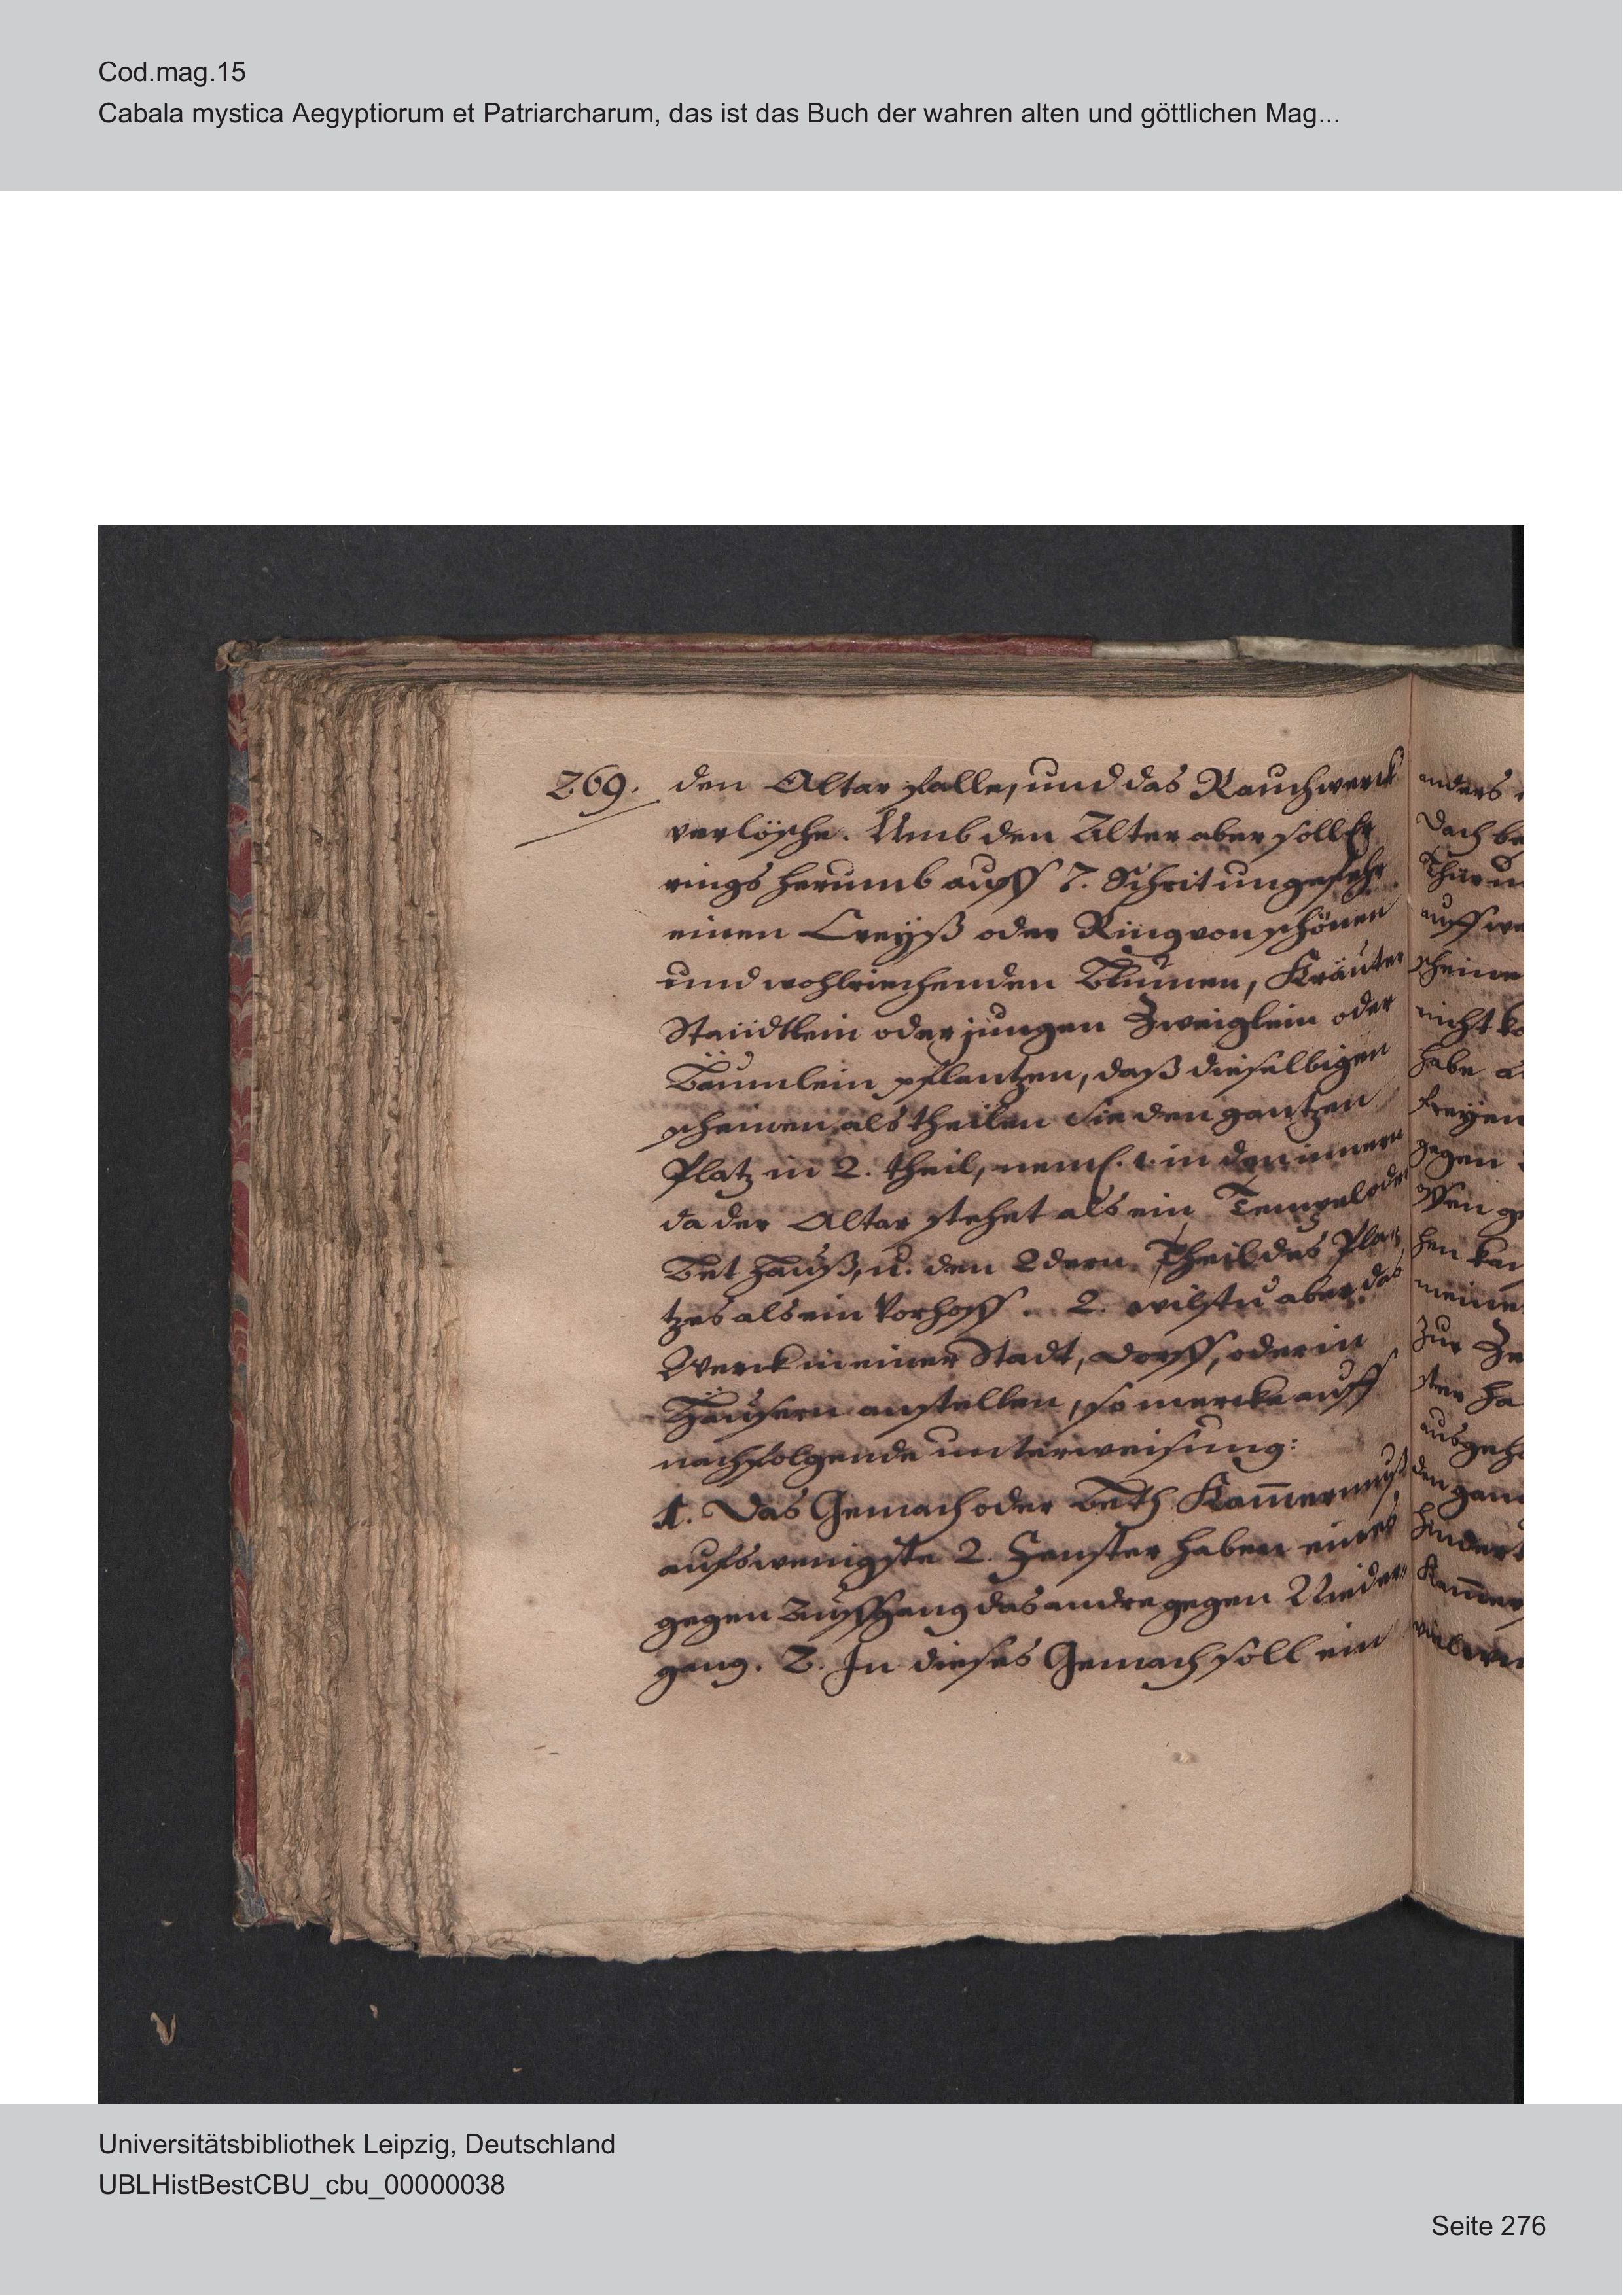 Cod.mag.15
Cabala mystica Aegyptiorum et Patriarcharum, das ist das Buch der wahren alten und göttlichen Mag...
269.
den Altar falle, und das Rauchwerck
verlösche. Umb den Alter aber soll Er
rings herumb auff 7. Schrit ungefehr
einen Creyß oder Ring von schönen
und wohlriechenden Blumen, Kräuter
Staüdtlein oder jungen Zweiglein oder
Bäumlein pflantzen, daß dieselbigen
scheinen als theilen sie den gantzen
Platz in 2. theil, neml. 1. in den innern
da der Altar stehet als ein Tempel oder
Bet Hauß, u. den 2dern Theil des Pla-
tzes als ein Vorhoff. 2. wilstu aber das
Werck in einer Stadt, Dorff, oder in
Häusern anstellen, so mercke auff
nachfolgende unterweisung:
1. Das Gemach oder Beth Kam̅er muß
aufs wenigste 2. Fenster haben eines
gegen Auffgang das andre gegen Nieder
gang. 2. In dieses Gemach soll ein
anders
Dach be
Thür un
auff we
scheine
nicht ko
habe a
freyen
gegen
offen g
hen kan
meine
Zur Ze
ster ha
ausgeh
den gan
hindert
Kam̅er
Universitätsbibliothek Leipzig, Deutschland
UBLHistBestCBU_cbu_00000038
Seite 276